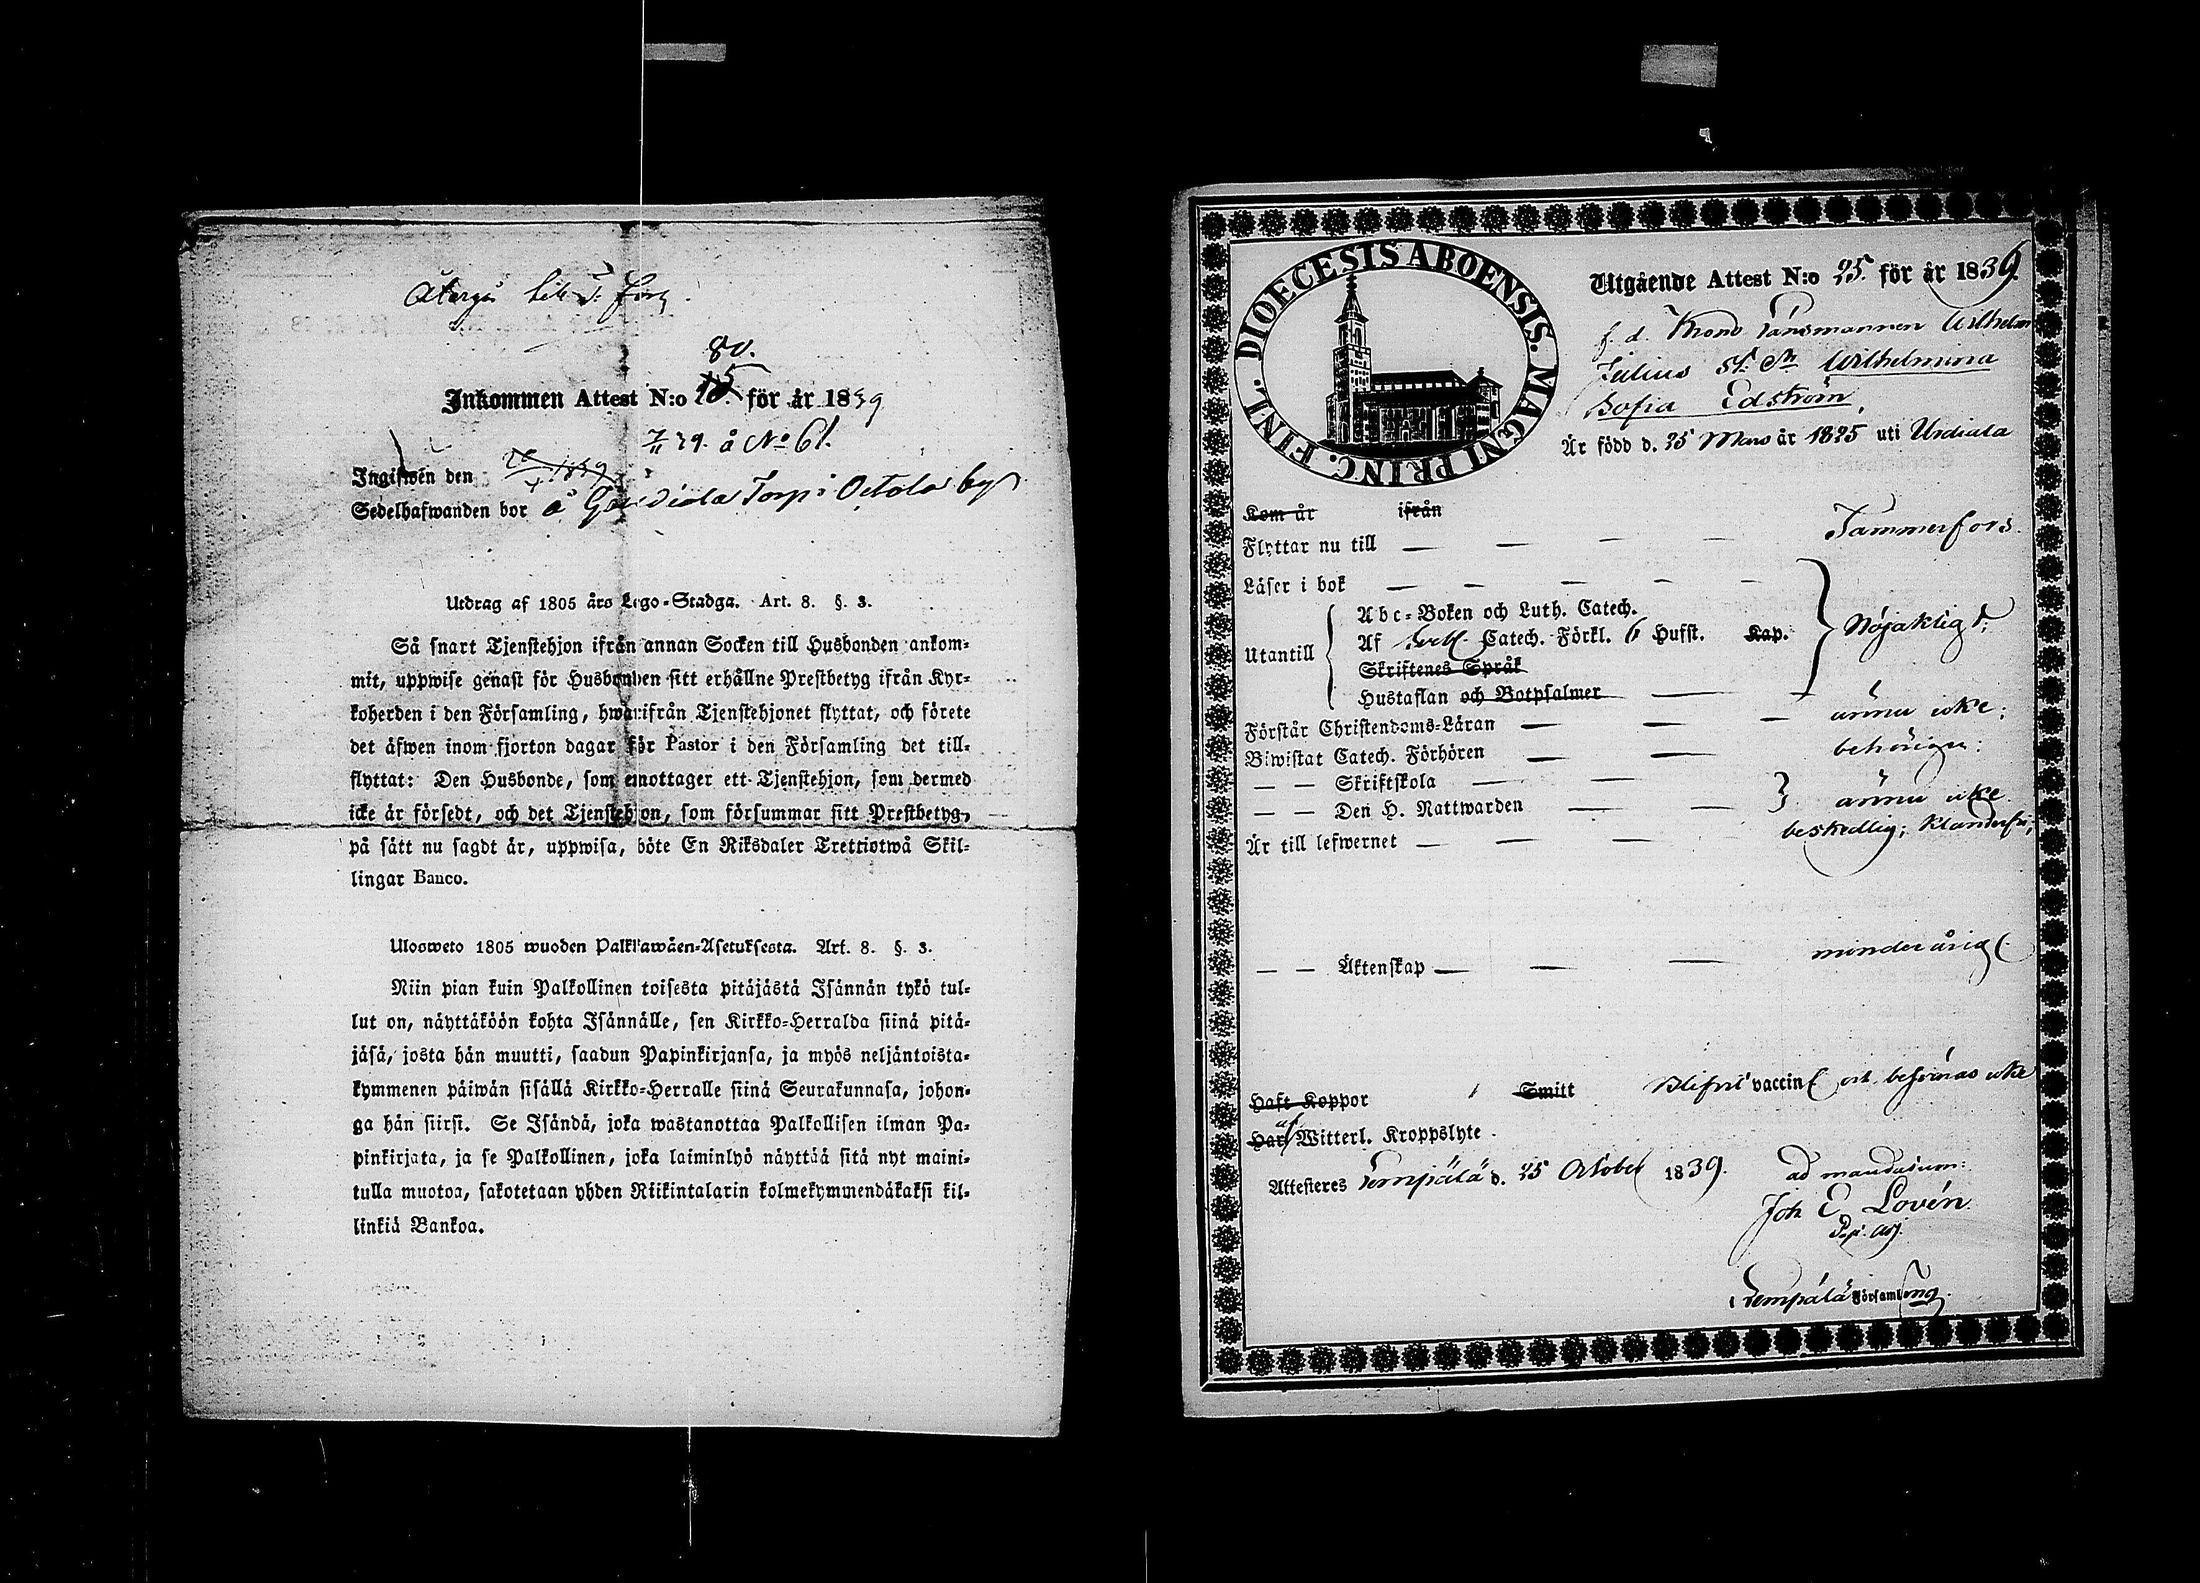 80.
Inkommen Attest N:o 15 för år 1839
7/11 39. å No 61.
Ingifwen den
Sedelhafwanden bor å Torp i by
Utdrag af 1805 års Lego-Stadga. Art. 8. §. 3.
Så snart Tjenstehjon ifrån annan Socken till Husbonden ankom-
mit, uppwise genast för Husbonden sitt erhållne Prestbetyg ifrån Kyr-
koherden i den Församling, hwarifrån Tjenstehjonet flyttat, och förete
det äfwen inom fjorton dagar för Pastor i den Församling det till-
flyttat: Den Husbonde, som emottager ett Tjenstehjon, som dermed
icke är försedt, och det Tjenstehjon, som försummar sitt Prestbetyg,
på sätt nu sagdt är, uppwisa, böte En Riksdaler Trettiotwå Skil-
lingar Banco.
Ulosweto 1805 wuoden Palkkawäen-Asetuksesta. Art. 8. §. 3.
Niin pian kuin Palkollinen toisesta pitäjästä Isännän tykö tul-
lut on, näyttäköön kohta Isännälle, sen Kirkko-Herralda siinä pitä-
jäsä, josta hän muutti, saadun Papinkirjansa, ja myös neljäntoista-
kymmenen päiwän sisällä Kirkko-Herralle siinä Seurakunnasa, johon-
ga hän siirsi. Se Isändä, joka wastanottaa Palkollisen ilman Pa-
pinkirjata, ja se Palkollinen, joka laiminlyö näyttää sitä nyt maini-
tulla muotoa, sakotetaan yhden Riikintalarin kolmekymmendäkaksi kil-
linkiä Bankoa.
DIOECESIS ABOENSIS. MAGNI PRINC. FINL.
Utgående Attest N:o 25. för år 1839.
f. d. Krono Länsmannen Wilhelm
Julius Wilhelmina
Sofia Edström,
Är född d. 25 Mars år 1825 uti Urdiala
Kom år ifrån
Flyttar nu till — — — — Tammerfors.
Läser i bok — — — — —
Utantill
Abc-Boken och Luth. Catech.
Af Catech. Förkl. 6 Hufst. Kap.
Nöjaktigt;
Skriftenes Språk
Hustaflan och Botpsalmer — —
Förstår Christendoms-Läran — — — ännu icke;
Biwistat Catech. Förhören — — behörigen;
— — Skriftskola — —
— — Den H. Nattwarden — — ännu icke
Är till lefwernet — — — beskedlig; klanderfri;
— — Äktenskap — — — minderårig.
Haft Koppor Smitt Blifvit vaccin. och besväras icke
Har af Witterl. Kroppslyte.
Attesteres Lempälä d. 25 October 1839. ad mandatum:
Joh E. Lovén.
Lempälä Församling.